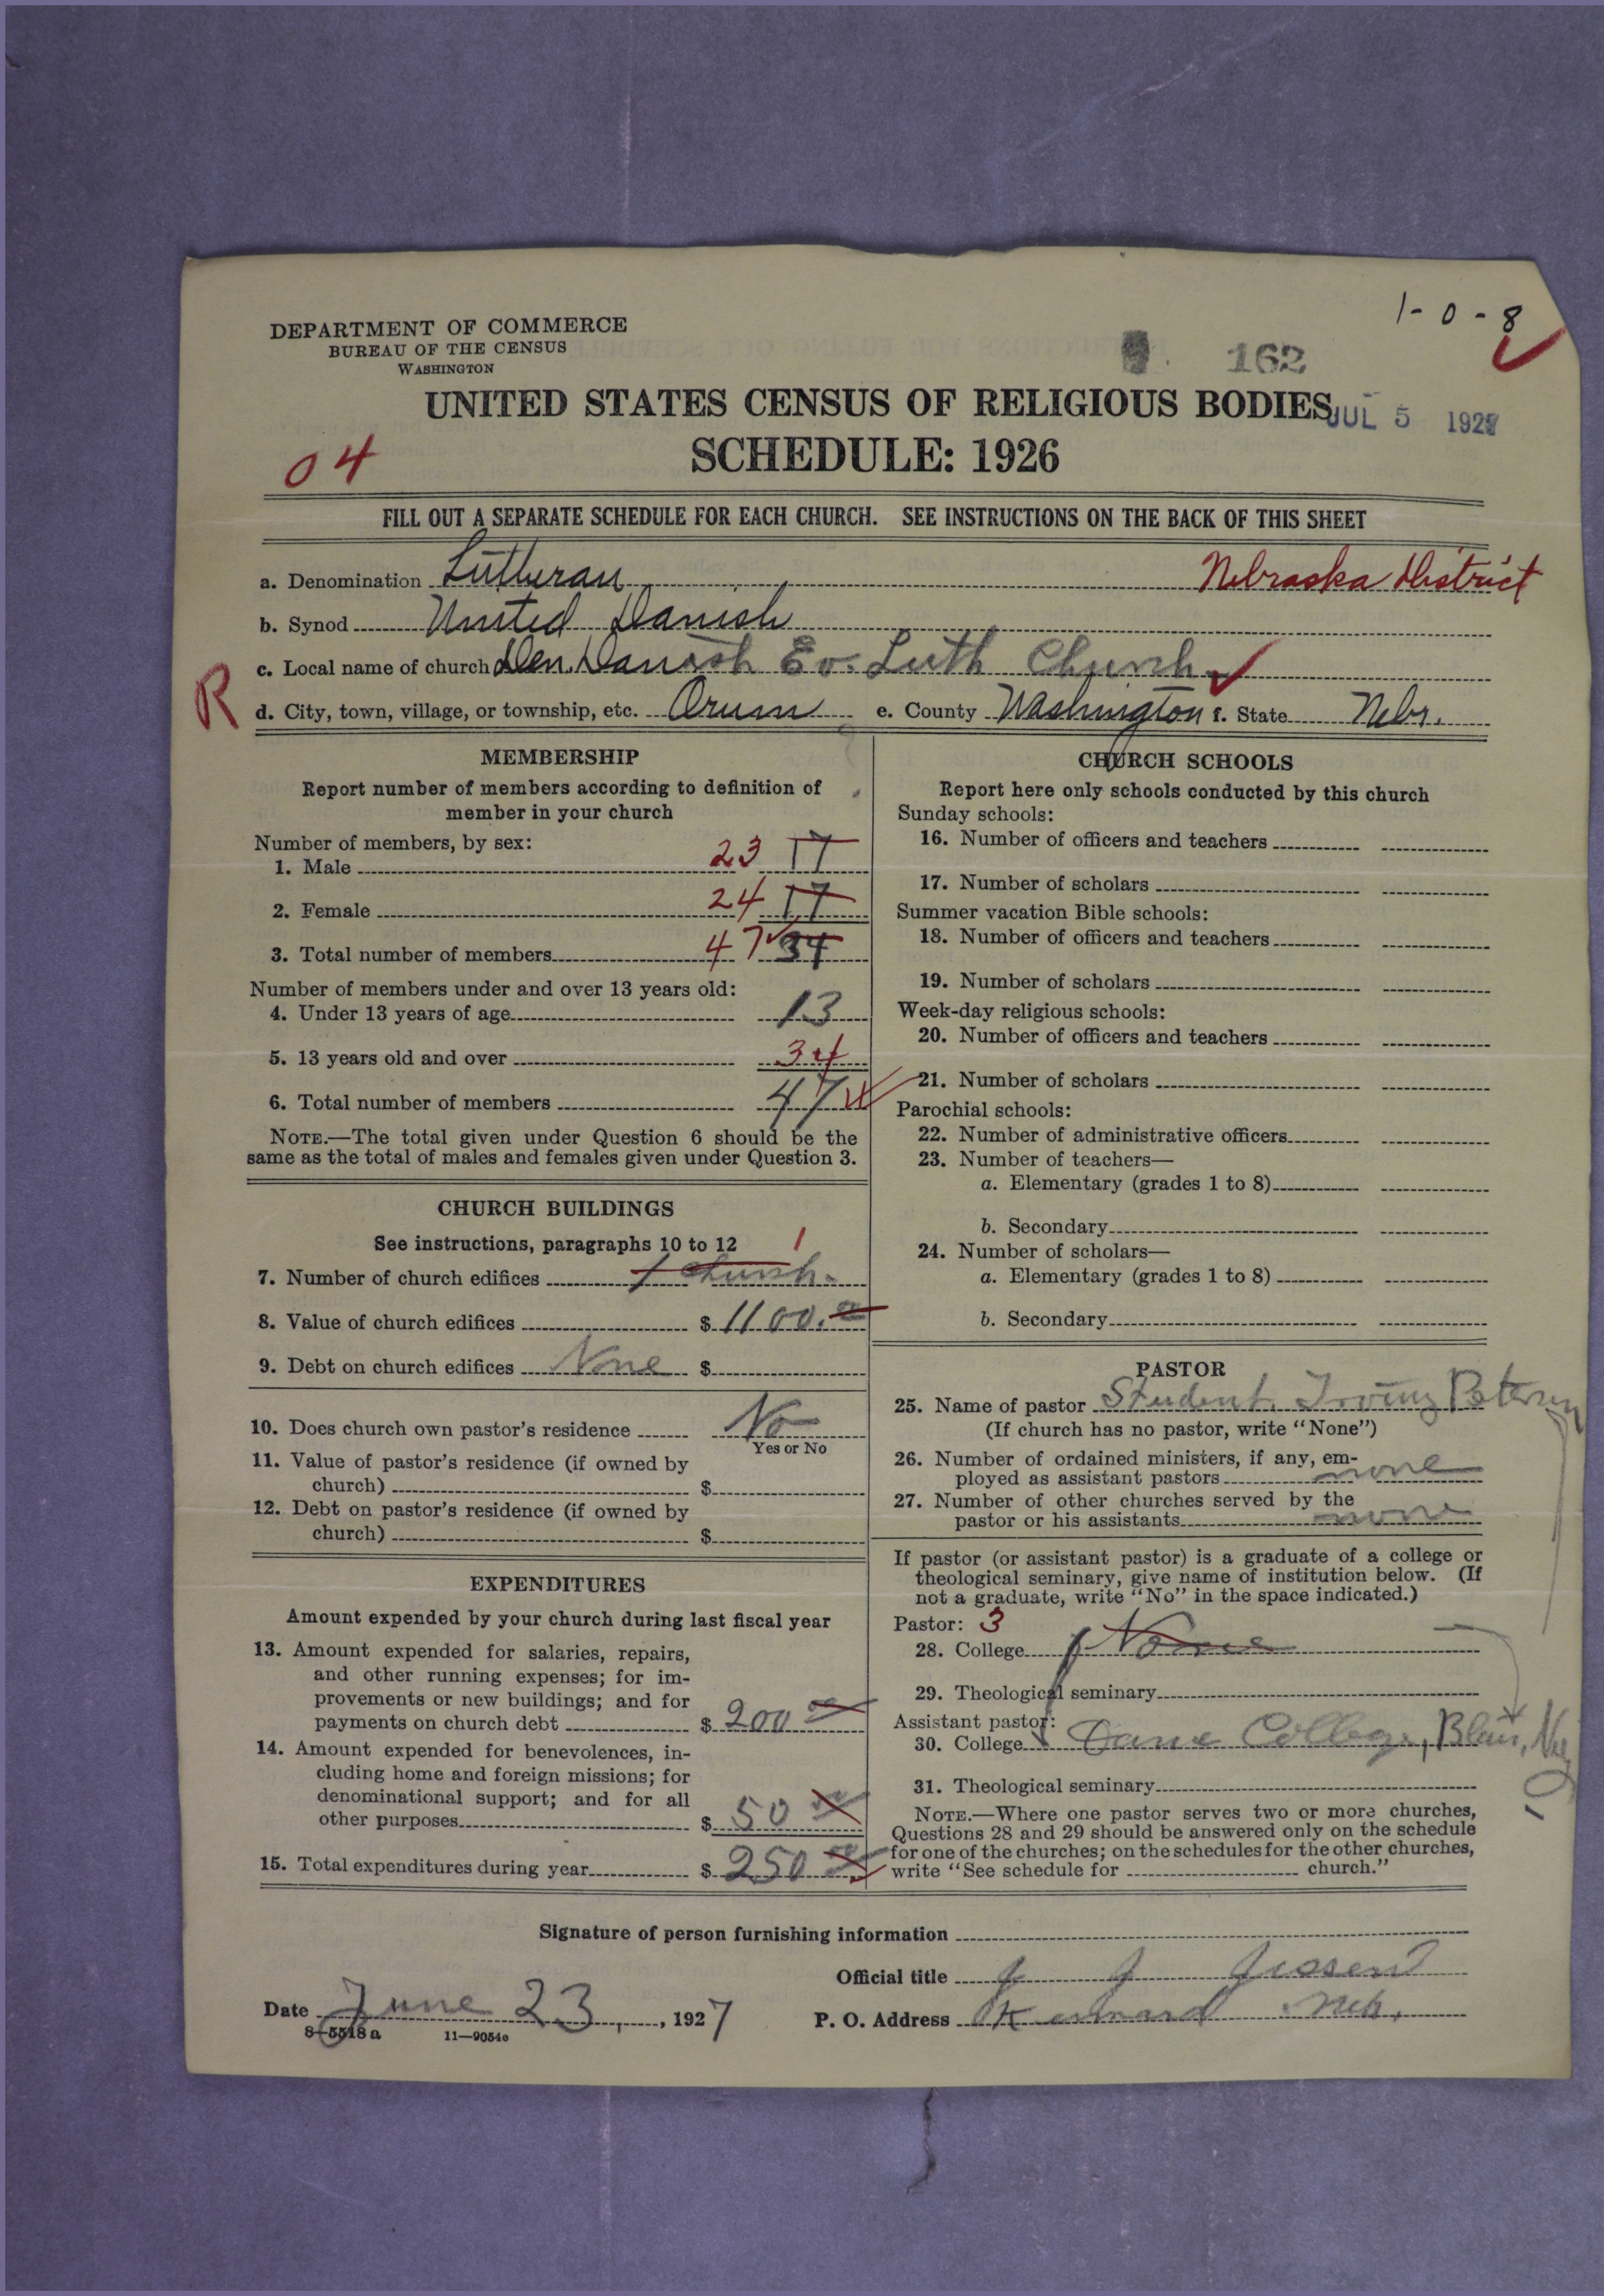 1-0-8
DEPARTMENT OF COMMERCE
BUREAU OF THE CENSUS
WASHINGTON
162
UNITED STATES CENSUS OF RELIGIOUS BODIES
JUL 5 1927
SCHEDULE: 1926
04
FILL OUT A SEPARATE SCHEDULE FOR EACH CHURCH. SEE INSTRUCTIONS ON THE BACK OF THIS SHEET
a. Denomination Lutheran Nebraska District
b. Synod United Danish
c. Local name of church Den Danish Ev. Luth Church
R
d. City, town, village, or township, etc. Orum e. County Washington f. State Nebr.
MEMBERSHIP
Report number of members according to definition of
member in your church
Number of members, by sex:
1. Male 23 17
2. Female 24 17
3. Total number of members 47 34
Number of members under and over 13 years old:
4. Under 13 years of age 13
5. 13 years old and over 34
6. Total number of members 47
NOTE.—The total given under Question 6 should be the
same as the total of males and females given under Question 3.
CHURCH BUILDINGS
See instructions, paragraphs 10 to 12 1
7. Number of church edifices 1 church.
8. Value of church edifices $ 1100.00
9. Debt on church edifices None $
10. Does church own pastor's residence No
Yes or No
11. Value of pastor's residence (if owned by
church) $
12. Debt on pastor's residence (if owned by
church) $
EXPENDITURES
Amount expended by your church during last fiscal year
13. Amount expended for salaries, repairs,
and other running expenses; for im-
provements or new buildings; and for
payments on church debt $ 200 00
14. Amount expended for benevolences, in-
cluding home and foreign missions; for
denominational support; and for all
other purposes $ 50 00
15. Total expenditures during year $ 250 00
CHURCH SCHOOLS
Report here only schools conducted by this church
Sunday schools:
16. Number of officers and teachers
17. Number of scholars
Summer vacation Bible schools:
18. Number of officers and teachers
19. Number of scholars
Week-day religious schools:
20. Number of officers and teachers
21. Number of scholars
Parochial schools:
22. Number of administrative officers
23. Number of teachers—
a. Elementary (grades 1 to 8)
b. Secondary
24. Number of scholars—
a. Elementary (grades 1 to 8)
b. Secondary
PASTOR
25. Name of pastor Student, Irving Petersen
(If church has no pastor, write "None")
26. Number of ordained ministers, if any, em-
ployed as assistant pastors none
27. Number of other churches served by the
pastor or his assistants none
If pastor (or assistant pastor) is a graduate of a college or
theological seminary, give name of institution below. (If
not a graduate, write "No" in the space indicated.)
Pastor: 3
28. College None
29. Theological seminary
Assistant pastor:
30. College Dana College, Blair,
31. Theological seminary
NOTE.—Where one pastor serves two or more churches,
Questions 28 and 29 should be answered only on the schedule
for one of the churches; on the schedules for the other churches,
write "See schedule for church."
Signature of person furnishing information
Official title J J Jessen
Date June 23, 1927 P. O. Address Kennard Neb.
8-5518 a 11-9054e